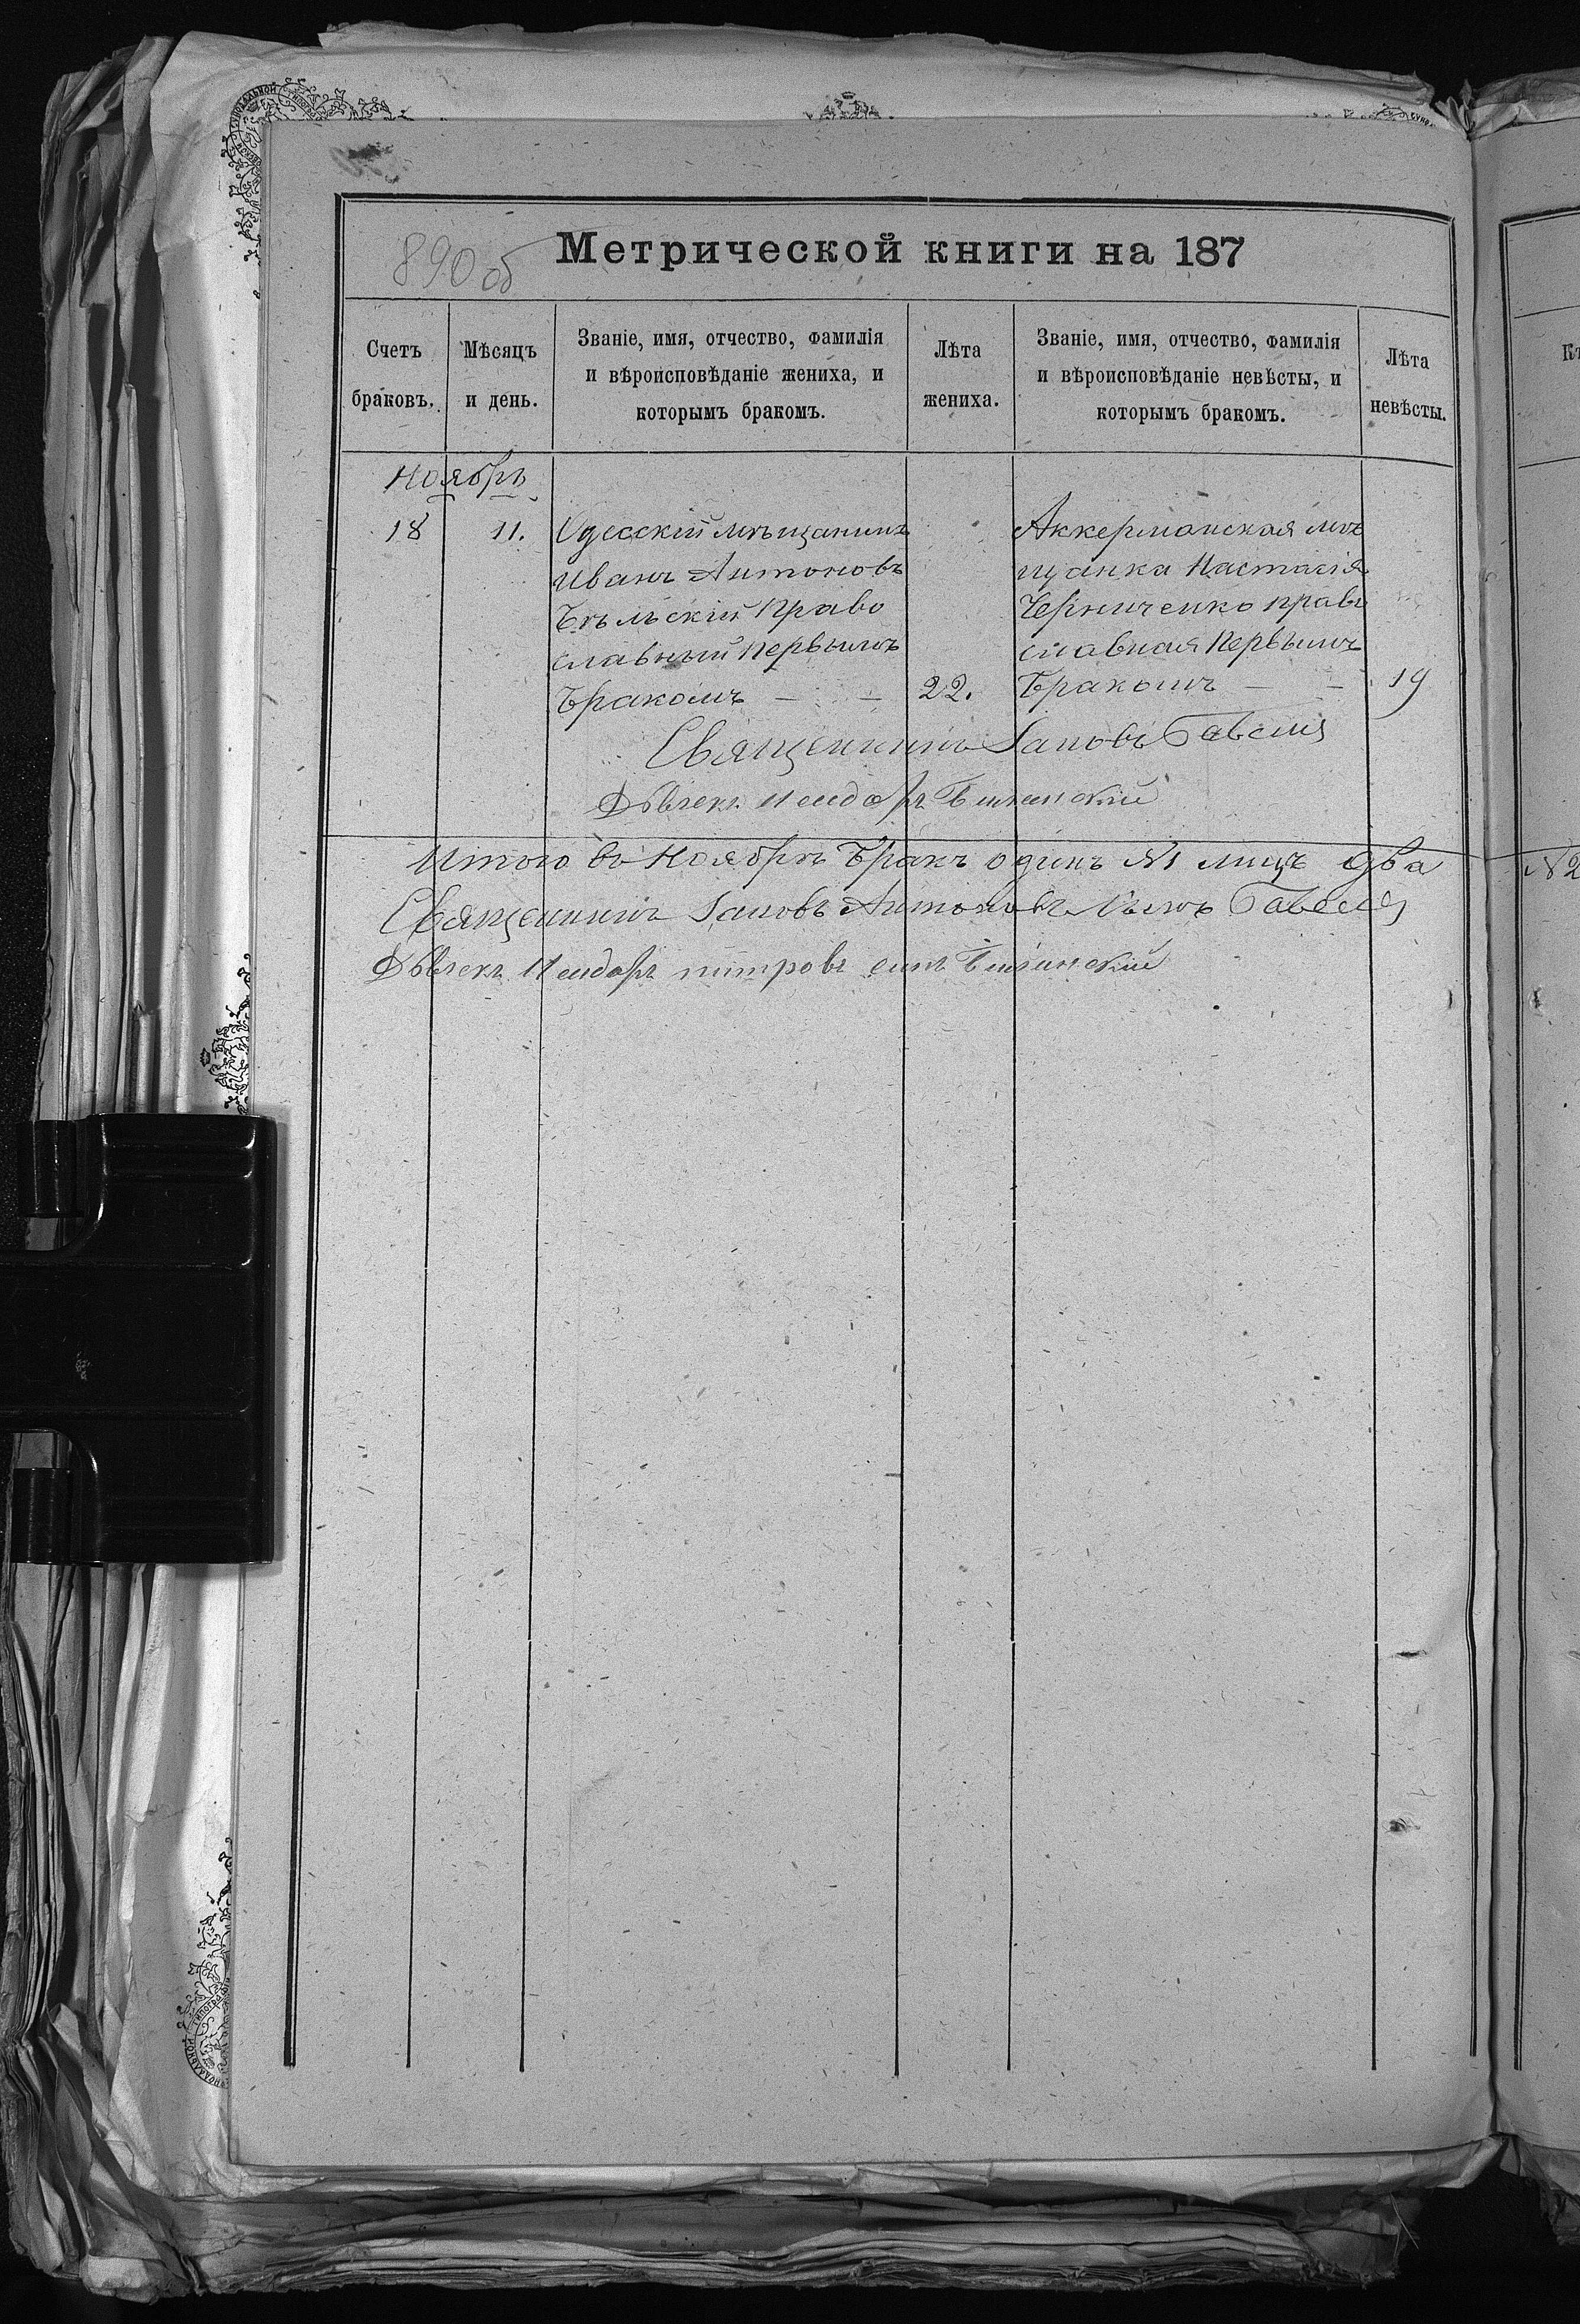 890 об
Метрической книги на 187
Счетъ браковъ.
Мѣсяцъ и день.
Званіе, имя, отчество, фамилія
и вѣроисповѣданіе жениха, и
которымъ бракомъ.
Лѣта жениха.
Званіе, имя, отчество, фамилія
и вѣроисповѣданіе невѣсты, и
которымъ бракомъ.
Лѣта невѣсты.
Ноябрь
18
11.
Одесскій мѣщанинъ
Иванъ Антоновъ
Бѣльскій Право
славный первымъ
Бракомъ — —
22.
Аккерманская мѣ
щанка Настасія
Черниченко право
славная Первымъ
Бракомъ — —
19
Священникъ Іаковъ
Итого въ Ноябрѣ Бракъ одинъ №1 лицъ два
Священникъ Іаковъ Антоновъ
№2